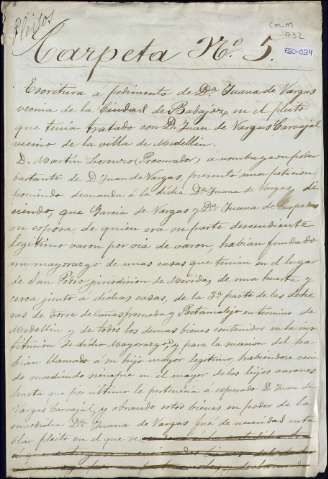 Pleitos
CM.M
032
F20-034
Carpeta Nº 5.
Escritura a pedimento de Dª Juana de Vargas
vecina de la Ciudad de Badajoz, en el pleito
que tenia tratado con D. Juan de Vargas Carvajal
vecino de la villa de Medellin.
D. Martin (Procurador) a nombre y con poder
bastante de D. Juan de Vargas, presentó una peticion
poniendo demanda á la dicha Dª Juana de Vargas, di
ciendo, que Garcia de Vargas y Dª Juana de
su esposa, de quien era su parte descendiente
legitimo varon por via de varon, habian fundado
un mayorazgo de unas casas que tenian en el lugar
de San Pedro, jurisdiccion de Merida, de una huerta y
cerca junto a dichas casas, de la 3ª parte de las dehe
sas de Torre de Cañaspremida y Portamalejo en termino de
Medellin y de todos los demas bienes contenidos en la ins
titucion de dicho Mayorazgo, y para la sucesion del ha
bian llamado a su hijo mayor legitimo, habiendose veni
do sucediendo siempre en el mayor de los hijos varones
hasta que por ultimo le pertenecia á D. Juan de
Vargas Carvajal, y estando estos bienes en poder de la
Dª Juana de Vargas fue de necesidad enta
blar pleito en el que